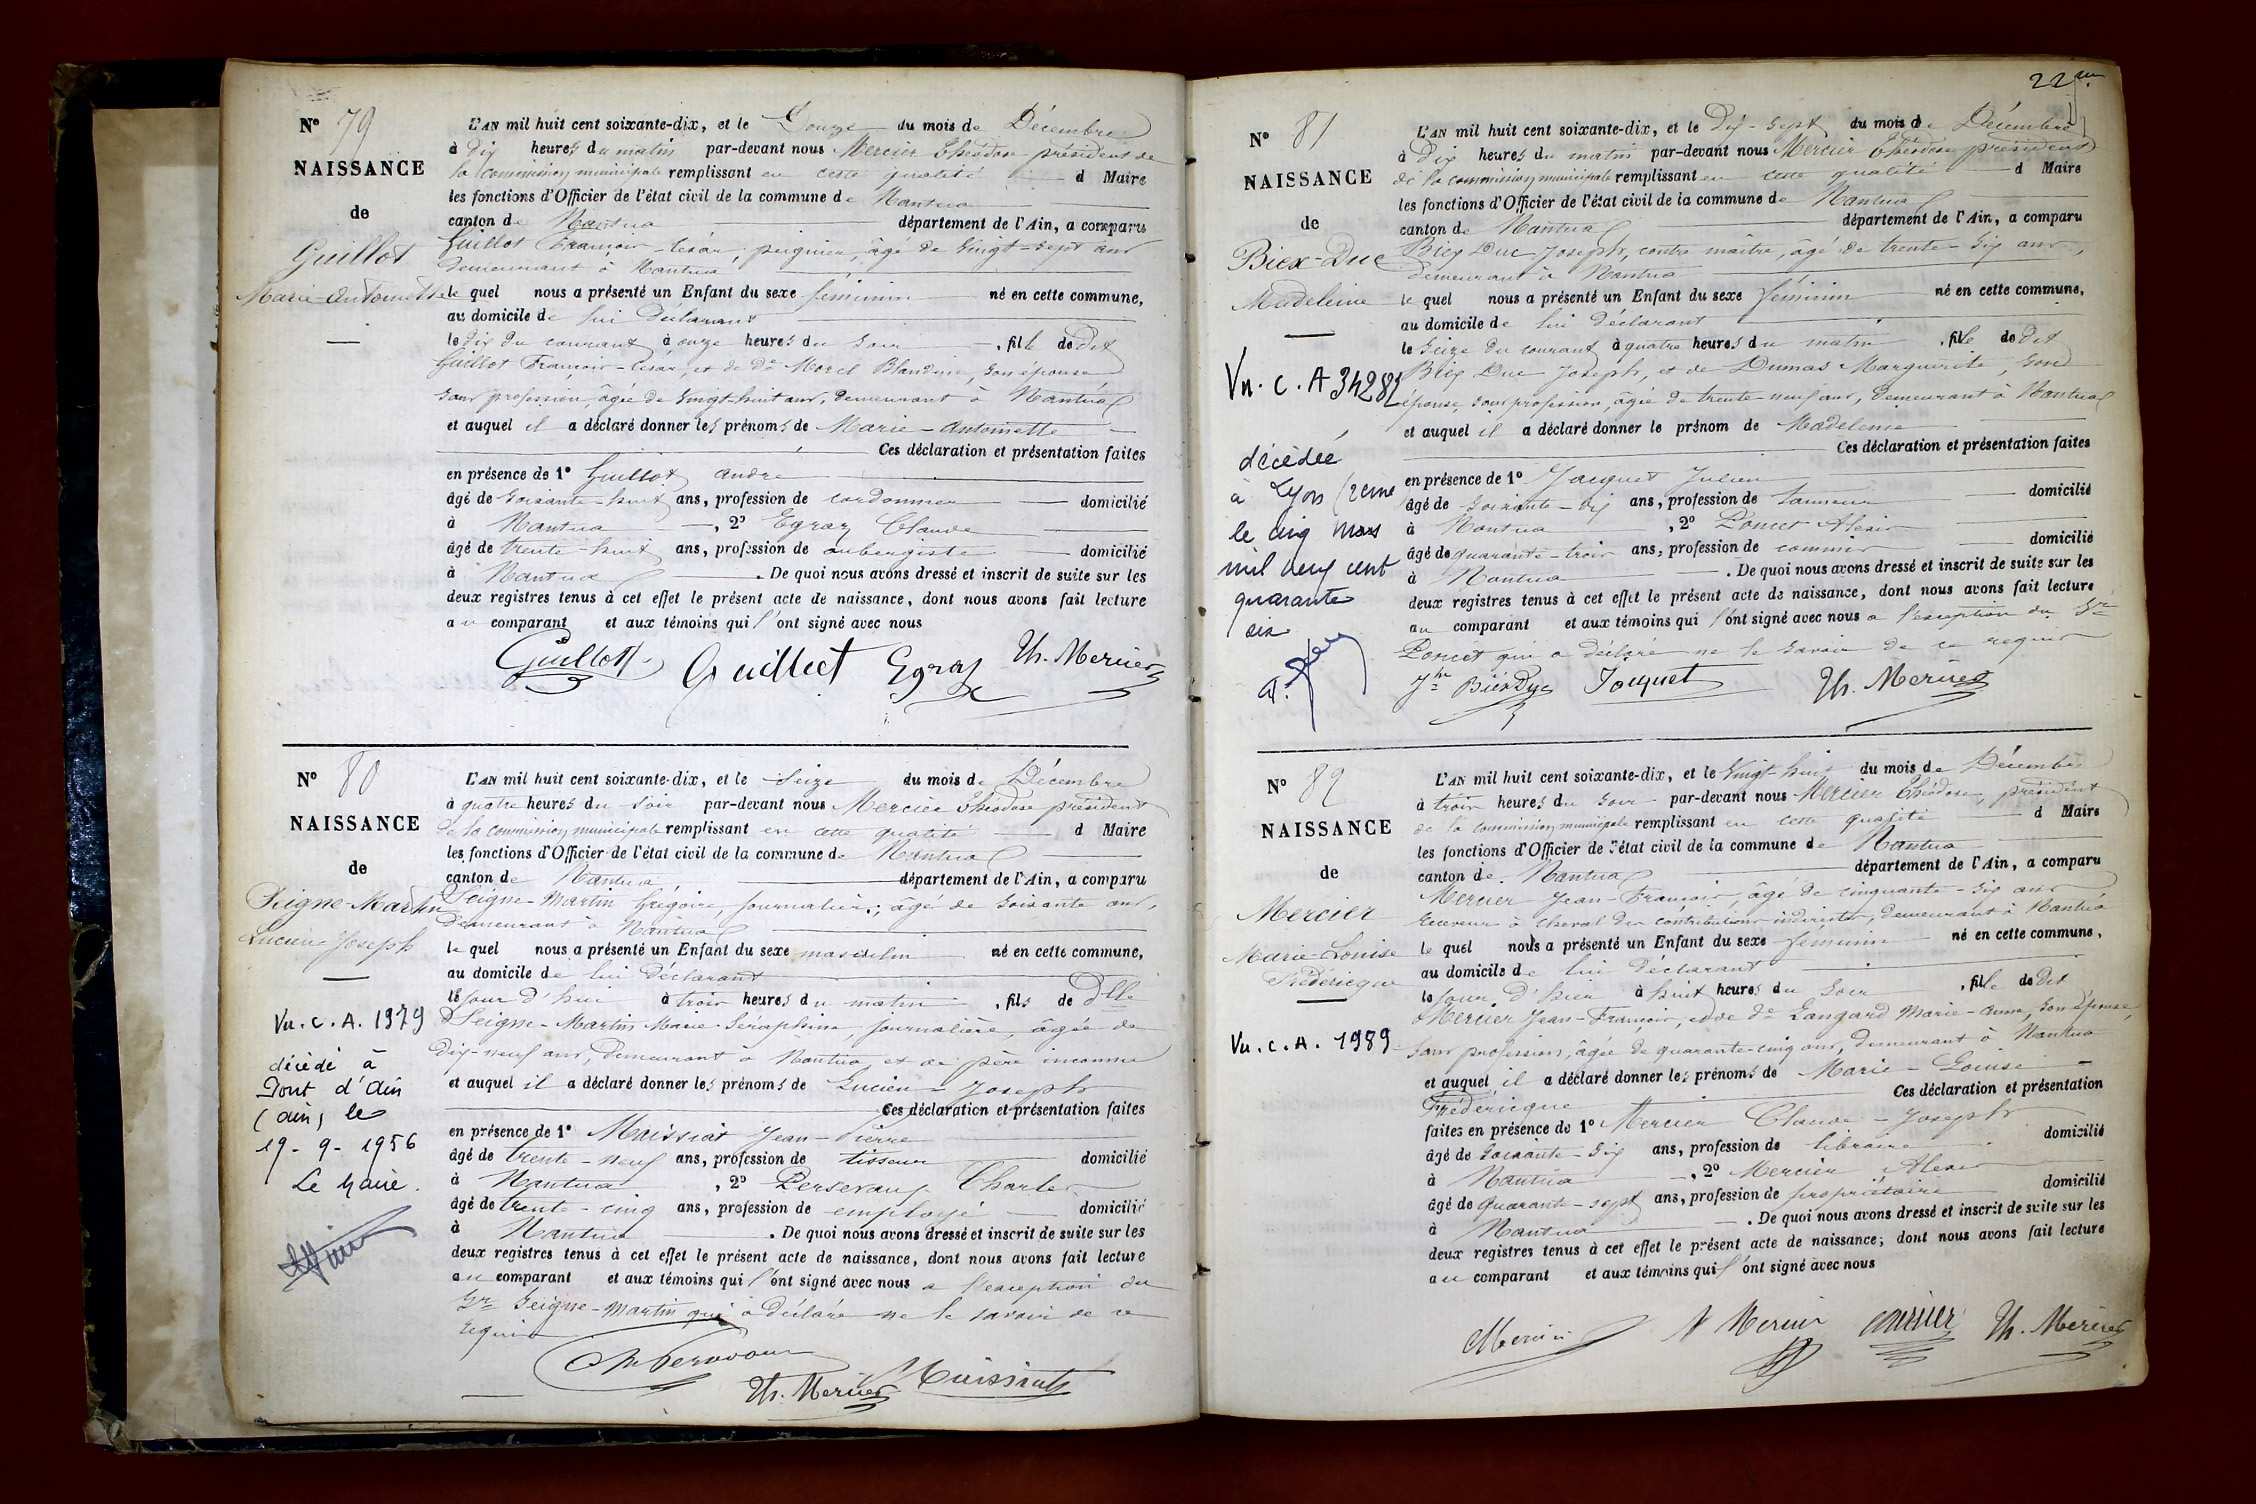 N° 79
NAISSANCE
de
Guillot
Marie-Antoinette
L'AN mil huit cent soixante-dix, et le Douze du mois de Décembre
à dix heures du matin par-devant nous Mercier Théodose président de
la commission municipale remplissant en cette qualité d Maire
les fonctions d'Officier de l'état civil de la commune de Nantua
canton de Nantua département de l'Ain, a comparu
Guillot François-César, peignier, âgé de vingt-sept ans
demeurant à Nantua
le quel nous a présenté un Enfant du sexe féminin né en cette commune,
au domicile de lui déclarant
le dix du courant à onze heures du soir, fille de dit
Guillot François-César, et de De Morel Blandine, son épouse
sans profession, âgée de vingt-huit ans, demeurant à Nantua
et auquel il a déclaré donner les prénoms de Marie-Antoinette
Ces déclaration et présentation faites
en présence de 1° Guillot André
âgé de soixante-huit ans, profession de cordonnier domicilié
à Nantua, 2° Egraz Claude
âgé de trente-huit ans, profession de aubergiste domicilié
à Nantua. De quoi nous avons dressé et inscrit de suite sur les
deux registres tenus à cet effet le présent acte de naissance, dont nous avons fait lecture
au comparant et aux témoins qui l'ont signé avec nous
Guillot Guillot Egraz Th. Mercier
N° 80
NAISSANCE
de
Seigne-Martin
Lucien-Joseph
Vu. C. A. 1979
décédé à
Pont d'Ain
(ain) le
19-9-1956
Le Maire.
L'AN mil huit cent soixante-dix, et le Seize du mois de Décembre
à quatre heures du soir par-devant nous Mercier Théodose président
de la commission municipale remplissant en cette qualité d Maire
les fonctions d'Officier de l'état civil de la commune de Nantua
canton de Nantua département de l'Ain, a comparu
Seigne-Martin Grégoire, journalier, âgé de soixante ans,
demeurant à Nantua
le quel nous a présenté un Enfant du sexe masculin né en cette commune,
au domicile de lui déclarant
le jour d'hui à trois heures du matin, fils de Dlle
Seigne-Martin Marie-Séraphine, journalière, âgée de
dix-neuf ans, demeurant à Nantua et de père inconnu
et auquel il a déclaré donner les prénoms de Lucien-Joseph
Ces déclaration et présentation faites
en présence de 1° Maissiat Jean-Pierre
âgé de trente-neuf ans, profession de tisseur domicilié
à Nantua, 2° Charles
âgé de trente-cinq ans, profession de employé domicilié
à Nantua. De quoi nous avons dressé et inscrit de suite sur les
deux registres tenus à cet effet le présent acte de naissance, dont nous avons fait lecture
au comparant et aux témoins qui l'ont signé avec nous a l'exception du
Sr Seigne-Martin qui a déclaré ne le savoir de ce
requis
Th. Mercier Maissiat
22
N° 81
NAISSANCE
de
Biex-Duc
Madeleine
Vu. C. A 34282
décédée
à Lyon (2eme
le cinq mars
mil neuf cent
quarante
six
L'AN mil huit cent soixante-dix, et le Dix-Sept du mois de Décembre
à Dix heures du matin par-devant nous Mercier Théodose président
de la commission municipale remplissant en cette qualité d Maire
les fonctions d'Officier de l'état civil de la commune de Nantua
canton de Nantua département de l'Ain, a comparu
Biex Duc Joseph, contre maître, âgé de trente-six ans,
demeurant à Nantua
le quel nous a présenté un Enfant du sexe féminin né en cette commune,
au domicile de lui déclarant
le seize du courant à quatre heures du matin, fille de dit
Biex Duc Joseph, et de Dumas Marguerite, son
épouse, sans profession, âgée de trente-neuf ans, demeurant à Nantua
et auquel il a déclaré donner le prénom de Madeleine
Ces déclaration et présentation faites
en présence de 1° Jacquet Julien
âgé de soixante-dix ans, profession de tanneur domicilié
à Nantua, 2° Poncet Alexis
âgé de quarante-trois ans, profession de commis domicilié
à Nantua. De quoi nous avons dressé et inscrit de suite sur les
deux registres tenus à cet effet le présent acte de naissance, dont nous avons fait lecture
au comparant et aux témoins qui l'ont signé avec nous a l'exception du Sr
Poncet qui a déclaré ne le savoir de ce requis
Jh Biex Duc Jouquet Th. Mercier
N° 82
NAISSANCE
de
Mercier
Marie-Louise
Frédéricque
Vu. C. A. 1989
L'AN mil huit cent soixante-dix, et le Vingt-huit du mois de Décembre
à trois heures du soir par-devant nous Mercier Théodose, président
de la commission municipale remplissant en cette qualité d Maire
les fonctions d'Officier de l'état civil de la commune de Nantua
canton de Nantua département de l'Ain, a comparu
Mercier Jean-François, âgé de cinquante-six ans
receveur à cheval des contributions indirectes, demeurant à Nantua
le quel nous a présenté un Enfant du sexe féminin né en cette commune,
au domicile de lui déclarant
le jour d'hier à huit heures du soir, fille de dit
Mercier Jean-François, et de De Langard Marie-Anne, son Epouse,
sans profession, âgée de quarante-cinq ans, demeurant à Nantua
et auquel il a déclaré donner les prénoms de Marie-Louise
Frédéricque Ces déclaration et présentation
faites en présence de 1° Mercier Claude-Joseph
âgé de soixante-six ans, profession de libraire domicilié
à Nantua, 2° Mercier Alexis
âgé de quarante-sept ans, profession de propriétaire domicilié
à Nantua. De quoi nous avons dressé et inscrit de suite sur les
deux registres tenus à cet effet le présent acte de naissance; dont nous avons fait lecture
au comparant et aux témoins qui l'ont signé avec nous
Mercier Mercier Th. Mercier